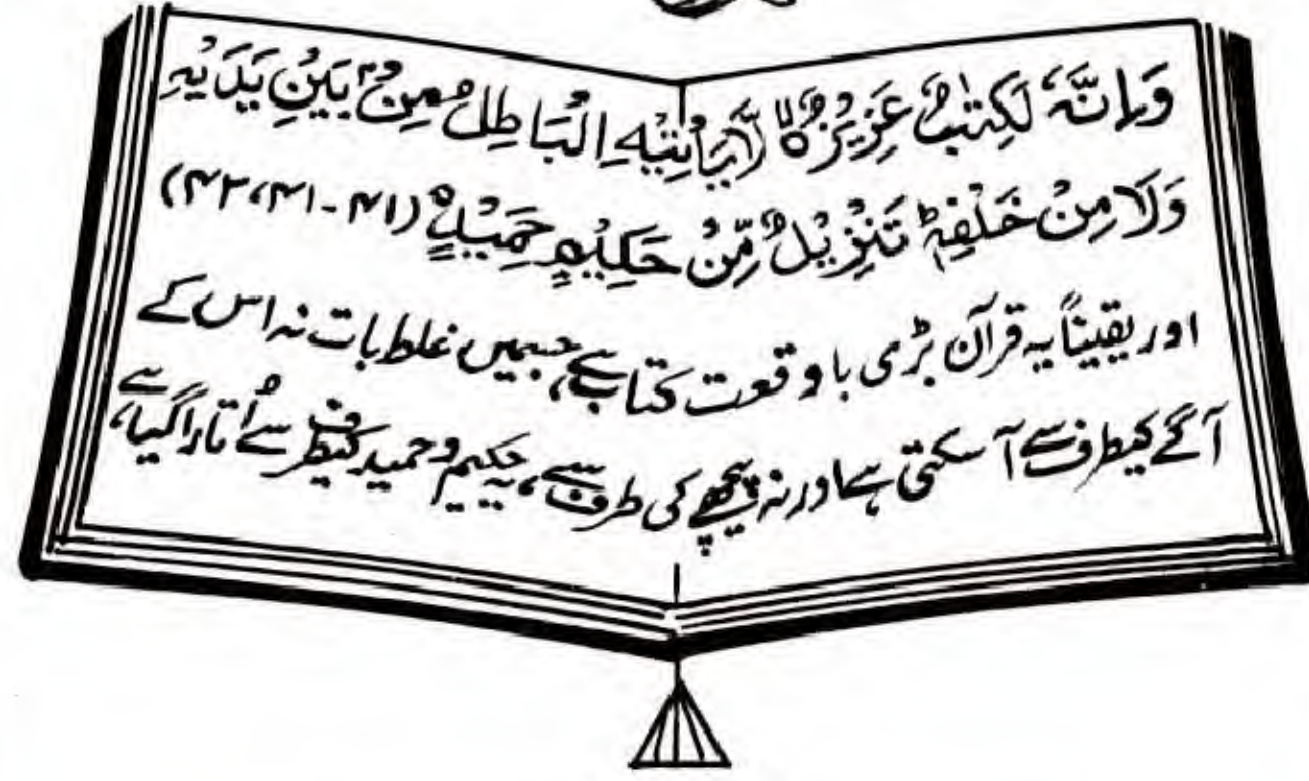 وَاِنَّهٗ لَكِتٰبٌ عَزِيْزٌ ۙ لَّا يَاْتِيْهِ الْبَاطِلُ مِنْۢ بَيْنِ يَدَيْهِ
وَلَا مِنْ خَلْفِهٖ ؕ تَنْزِيْلٌ مِّنْ حَكِيْمٍ حَمِيْدٍ (۴۱-۴۱،۴۲)
اور یقیناً یہ قرآن بڑی باوقعت کتاب ہے، جسمیں غلط بات نہ اس کے
آگے کیطرف سے آسکتی ہے اور نہ پیچھے کی طرف سے، یہ حکیم و حمید کیطرف سے اُتارا گیا ہے،